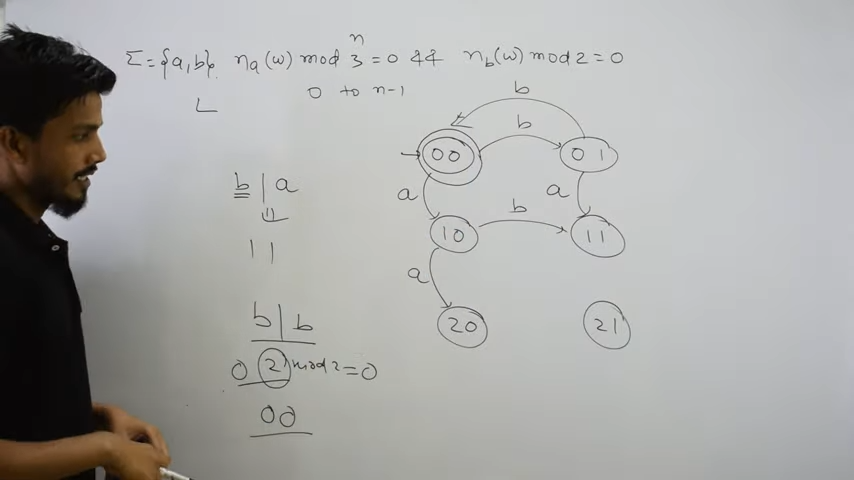 Σ={a,b}. na(w) mod 3 = 0 && nb(w) mod 2 = 0
n
0 to n-1
L
b | a
11
b | b
0 2 mod 2 = 0
00
b
b
00
01
a
a
10
b
11
a
20
21